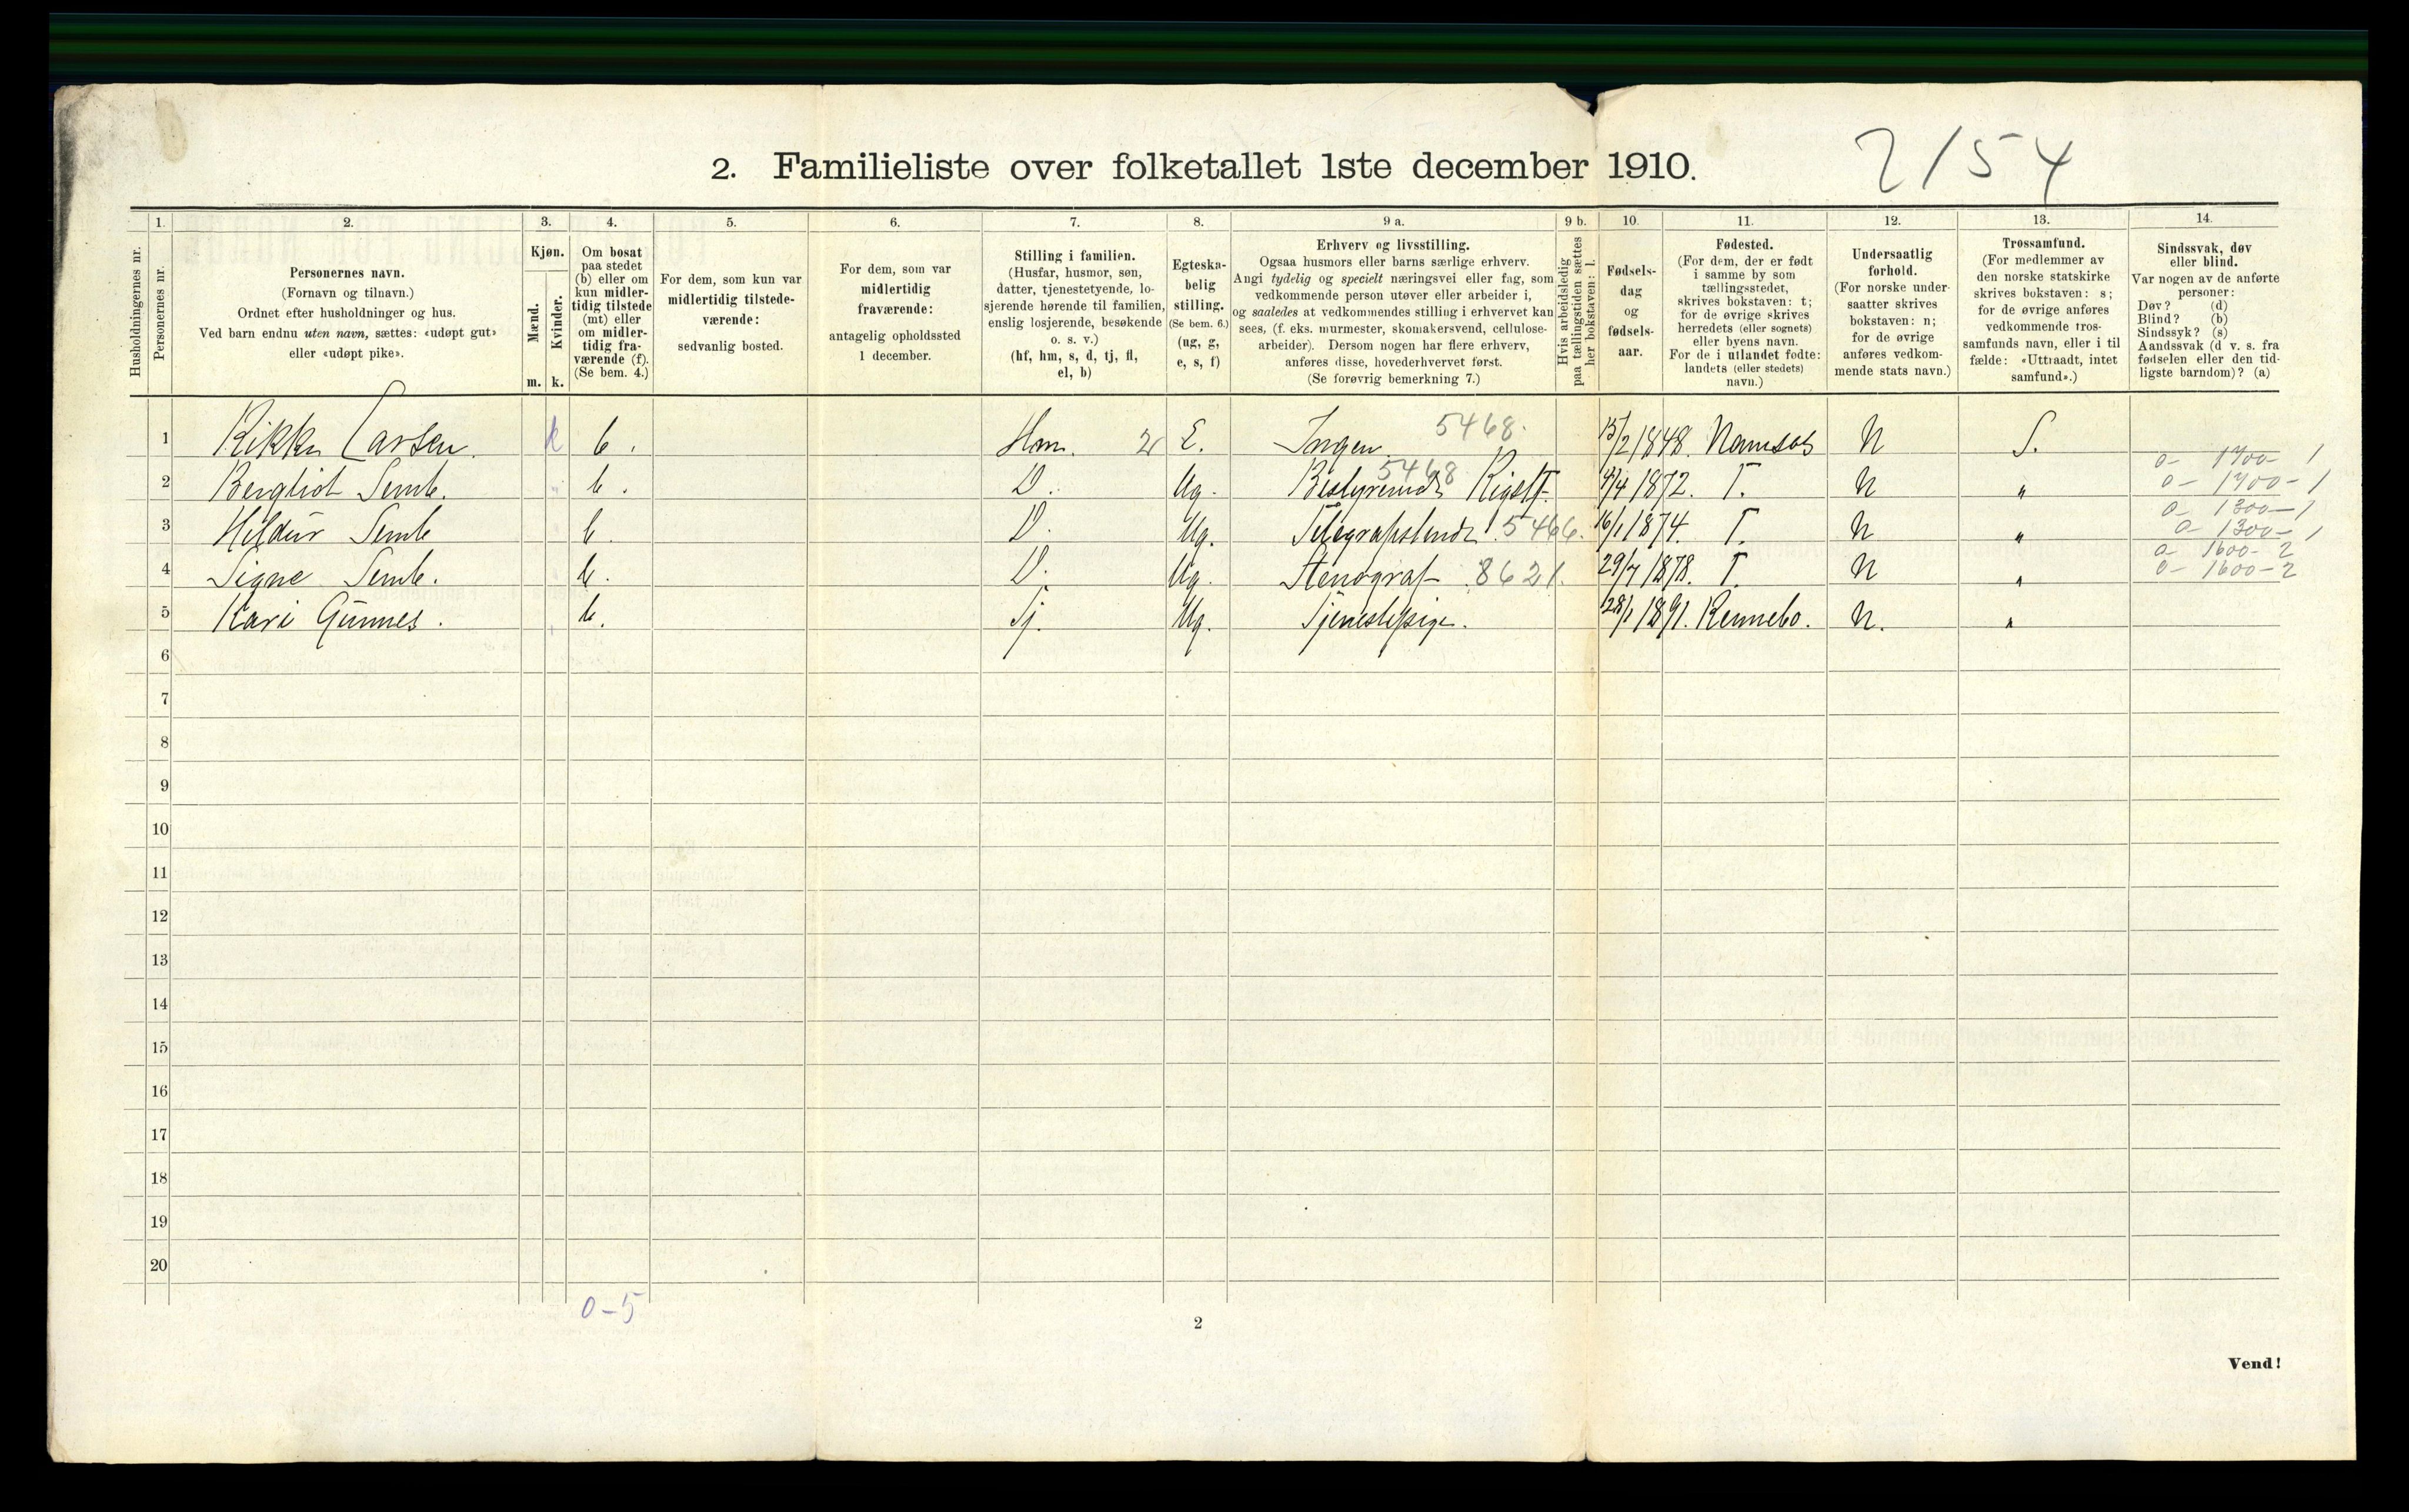 2154
2. Familieliste over folketallet 1ste december 1910.
Husholdningernes nr.
1.
Personernes nr.
2.
Personernes navn.
(Fornavn og tilnavn.)
Ordnet efter husholdninger og hus.
Ved barn endnu uten navn, sættes: «udøpt gut»
eller «udøpt pike».
3.
Kjøn.
Mænd.
Kvinder.
m. k.
4.
Om bosat
paa stedet
(b) eller om
kun midler-
tidig tilstede
(mt) eller
om midler-
tidig fra-
værende (f).
(Se bem. 4.)
5.
For dem, som kun var
midlertidig tilstede-
værende:
sedvanlig bosted.
6.
For dem, som var
midlertidig
fraværende:
antagelig opholdssted
1 december.
7.
Stilling i familien.
(Husfar, husmor, søn,
datter, tjenestetyende, lo-
sjerende hørende til familien,
enslig losjerende, besøkende
o. s. v.)
(hf, hm, s, d, tj, fl,
el, b)
8.
Egteska-
belig
stilling.
(Se bem. 6.)
(ug, g,
e, s, f)
9 a.
Erhverv og livsstilling.
Ogsaa husmors eller barns særlige erhverv.
Angi tydelig og specielt næringsvei eller fag, som
vedkommende person utøver eller arbeider i,
og saaledes at vedkommendes stilling i erhvervet kan
sees, (f. eks. murmester, skomakersvend, cellulose-
arbeider). Dersom nogen har flere erhverv,
anføres disse, hovederhvervet først.
(Se forøvrig bemerkning 7.)
9 b.
Hvis arbeidsledig
paa tællingstiden sættes
her bokstaven: l.
10.
Fødsels-
dag
og
fødsels-
aar.
11.
Fødested.
(For dem, der er født
i samme by som
tællingsstedet,
skrives bokstaven: t;
for de øvrige skrives
herredets (eller sognets)
eller byens navn.
For de i utlandet fødte:
landets (eller stedets)
navn.)
12.
Undersaatlig
forhold.
(For norske under-
saatter skrives
bokstaven: n;
for de øvrige
anføres vedkom-
mende stats navn.)
13.
Trossamfund.
(For medlemmer av
den norske statskirke
skrives bokstaven: s;
for de øvrige anføres
vedkommende tros-
samfunds navn, eller i til
fælde: «Uttraadt, intet
samfund».)
14.
Sindssvak, døv
eller blind.
Var nogen av de anførte
personer:
Døv? (d)
Blind? (b)
Sindssyk? (s)
Aandssvak (d v. s. fra
fødselen eller den tid-
ligste barndom)? (a)
1 Rikka Larsen. k b. Hm. E. Ingen 5468. 15/2 1848. Namsos N S.
2 Bergliot Semb. b. D. Ug. 5468 1872. T. N " 0- 1700-1
3 Hildur Semb b. D. Ug. 5466. 16/1 1874. T. N " 0- 1300-1
4 Signe Semb. b. D. Ug. Stenograf 8621. 29/7 1878. T. N " 0- 1600-2
5 Kari Gunnes. b. Tj. Ug. Tjenestepige. 28/1 1891. Rennebo. N. "
6
7
8
9
10
11
12
13
14
15
16
17
18
19
20
0-5
2
Vend!